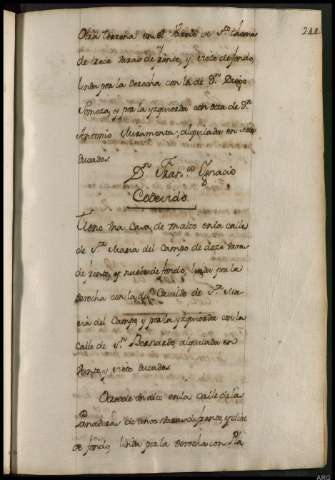 Otra terreña en el Barrio de Sto. thomas
de trece varas de frente, y siete de fondo,
linda por la derecha con la de Dn. Diego
y por la izquierda con otra de Dn.
Antonio alquilada en seis
ducados
244
Dn. Franco. Ygnacio
Cobecido
tiene una Casa de malto en la calle
de Sta. Maria del Campo de doze varas
de frente, y nuebe de fondo, linda por la
derecha con la del Cavildo de Sta. Ma-
ria del Campo, y por la izquierda con la
Calle de Sn. Bernardo, alquilada en
veinte, y siete ducados
Otra de un alto en la calle de las
Panaderas de cinco varas de frente, y diez
de fondo, linda por la derecha con Pla
ARG